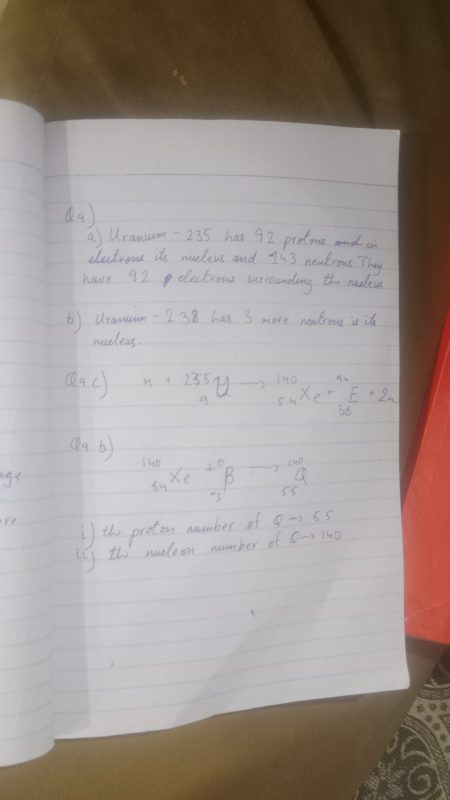 Q9)
a) Uranium - 235 has 92 protons and in
electrons its nucleus and 143 neutrons. They
have 92 electrons surrounding the nucleus
b) Uranium - 238 has 3 more neutrons is its
nucleus.
Q9 c) n + 235 U → 140 54 Xe + 94 38 E + 2n
9
Q9 b)
140 54 Xe + 0 -1 β → 140 55 Q
i) the proton number of Q → 55
ii) the nucleon number of Q → 140